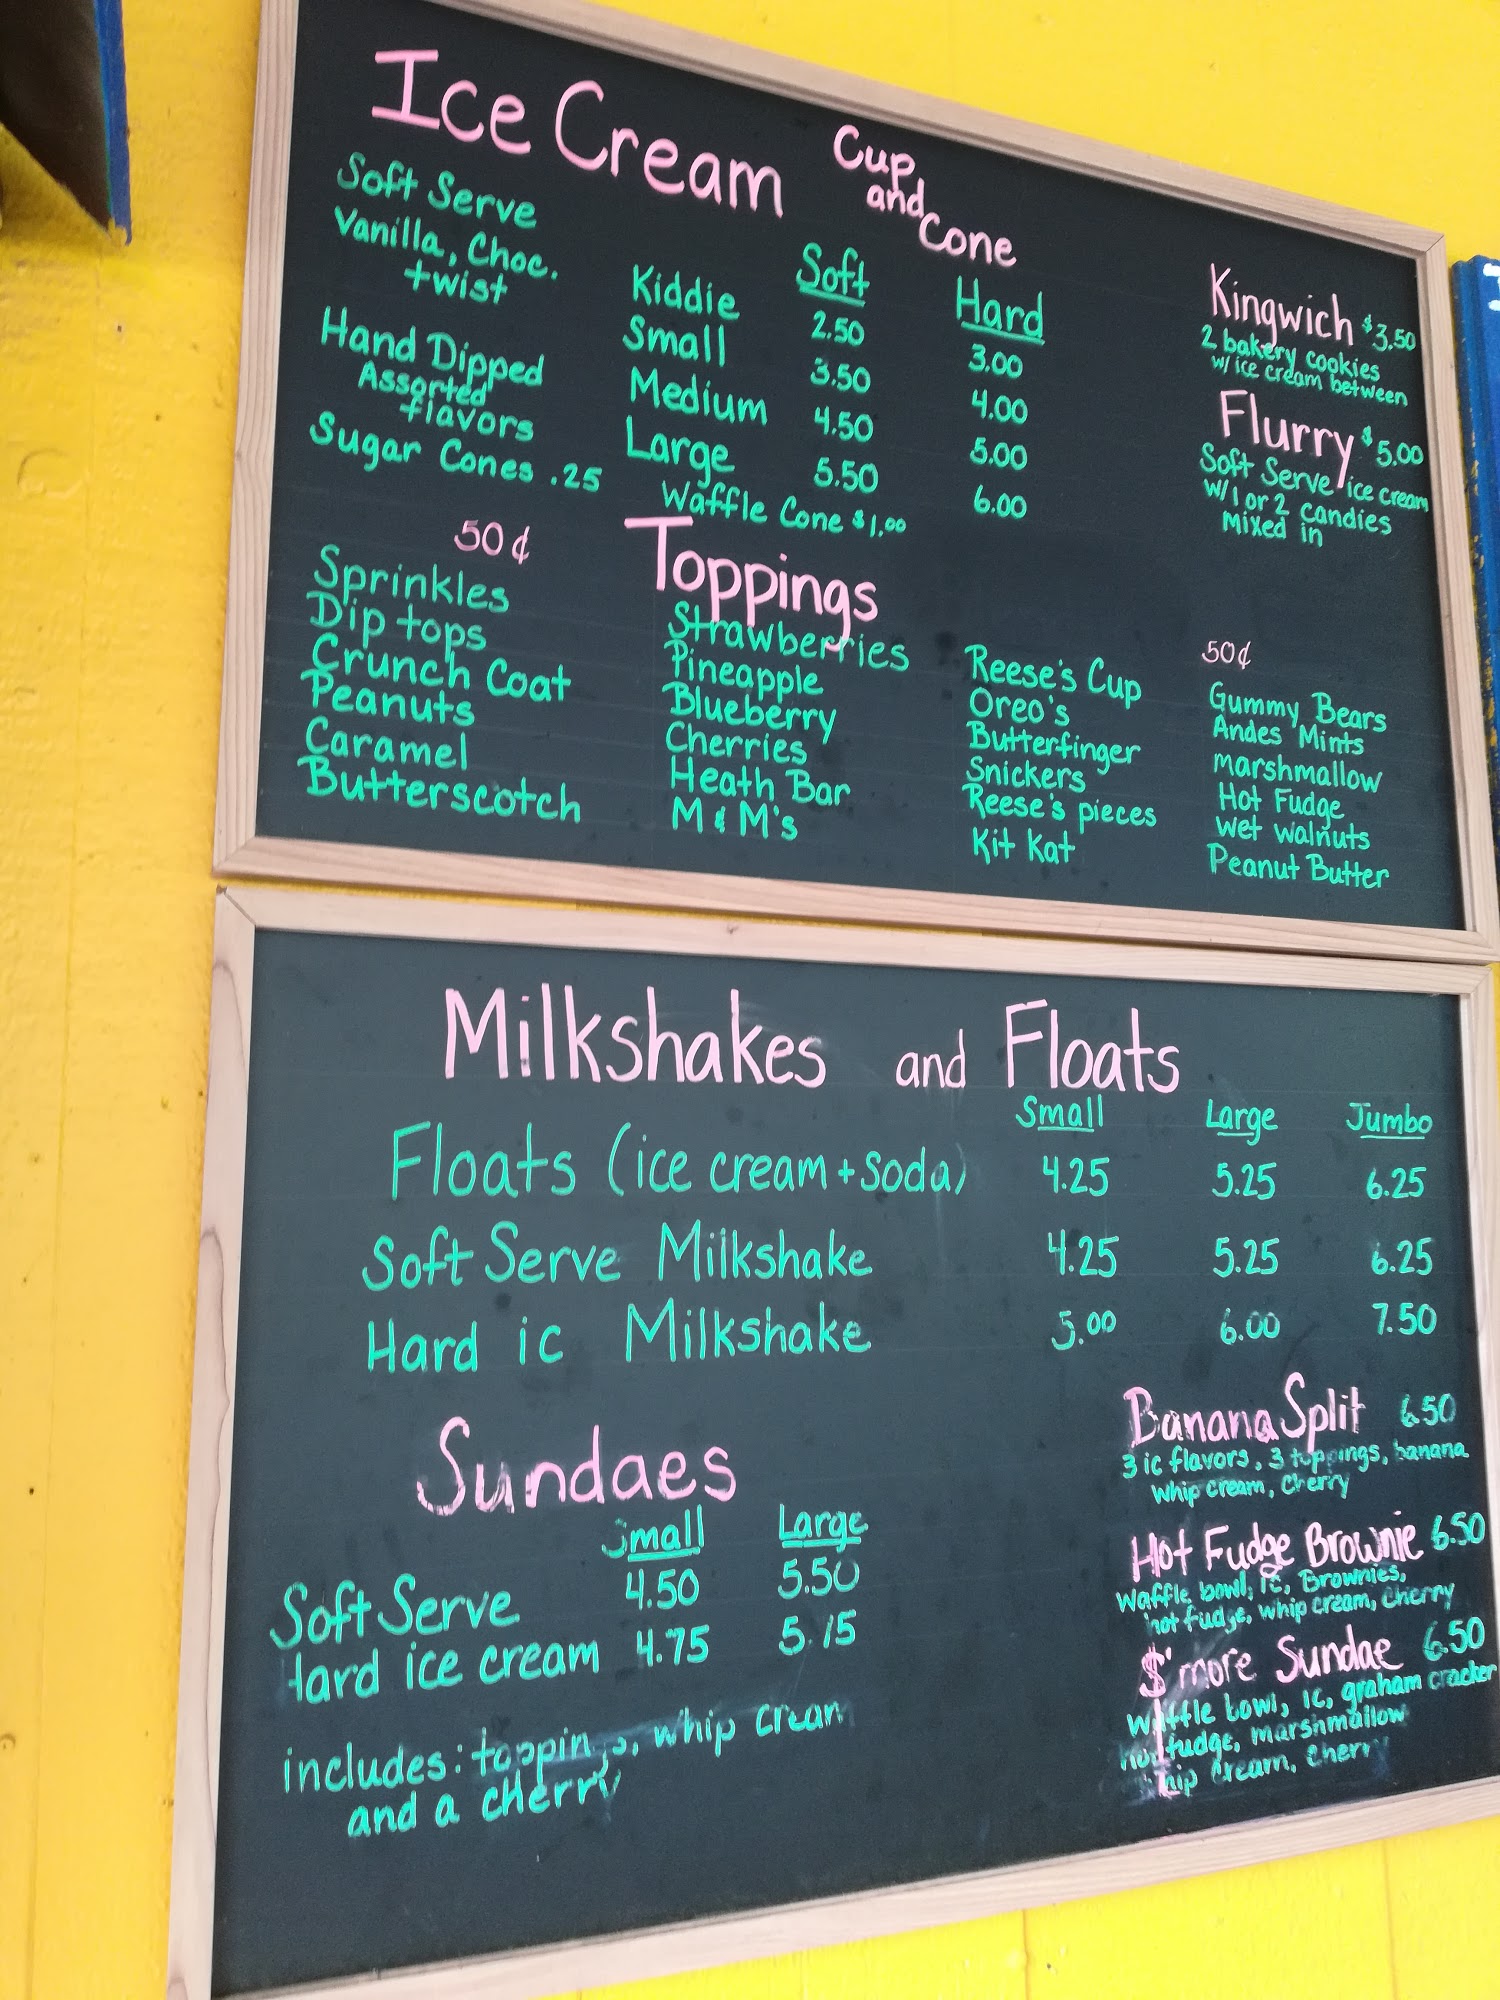 Ice Cream Cup and Cone
Soft Serve
Vanilla, Choc.
twist
Hand Dipped
Assorted
flavors
Sugar Cones .25
Soft Hard
Kiddie 2.50 3.00
Small 3.50 4.00
Medium 4.50 5.00
Large 5.50 6.00
Waffle Cone $1.00
Kingwich $3.50
2 bakery cookies
w/ ice cream between
Flurry $5.00
Soft Serve ice cream
w/ 1 or 2 candies
Mixed in
Toppings
50¢
Sprinkles
Dip tops
Crunch Coat
Peanuts
Caramel
Butterscotch
Strawberries
Pineapple
Blueberry
Cherries
Heath Bar
M & M's
Reese's Cup
Oreo's
Butterfinger
Snickers
Reese's pieces
Kit Kat
50¢
Gummy Bears
Andes Mints
marshmallow
Hot Fudge
wet walnuts
Peanut Butter
Milkshakes and Floats
Small Large Jumbo
Floats (ice cream + Soda) 4.25 5.25 6.25
Soft Serve Milkshake 4.25 5.25 6.25
Hard ic Milkshake 5.00 6.00 7.50
Sundaes
Small Large
Soft Serve 4.50 5.50
Hard ice cream 4.75 5.75
includes: whip cream
and a cherry
Banana Split 6.50
3 ic flavors, 3 toppings, banana
whip cream, cherry
Hot Fudge Brownie 6.50
Waffle bowl, ic, Brownies,
hot fudge, whip cream, cherry
S'more Sundae 6.50
Waffle bowl, ic, graham cracker
hot fudge, marshmallow
whip cream, cherry